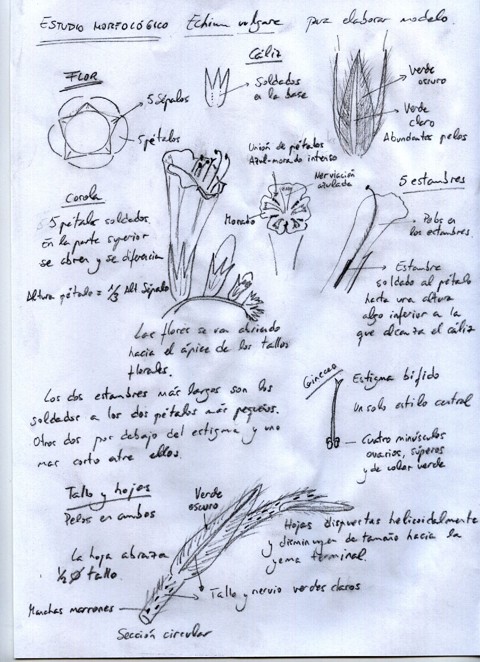 ESTUDIO MORFOLÓGICO Echium vulgare para elaborar modelo.
FLOR
5 Sépalos
5 pétalos
Cáliz
Soldados
a la base
Verde
oscuro
Verde
claro
Abundantes pelos
Corola
5 pétalos soldados.
En la parte superior
se abren y se diferencian
Altura pétalo = 1/3 Alt Sépalo
Unión de pétalos
Azul-morado intenso
Nerviación
azulada
Morado
5 estambres
. Pelos en
los estambres.
Estambre
soldado al pétalo
hasta una altura
algo inferior a la
que alcanza el cáliz
Las flores se van abriendo
hacia el ápice de los tallos
florales.
Los dos estambres más largos son los
soldados a los dos pétalos más pequeños.
Otros dos por debajo del estigma y uno
mas corto entre ellos.
Gineceo
Estigma bífido
Un solo estilo central
Cuatro minúsculos
ovarios, súperos
y de color verde
Tallo y hojas
Pelos en ambos
Verde
oscuro
La hoja abraza
1/2 Ø tallo.
Hojas dispuestas helicoidalmente
y disminuyen de tamaño hacia la
yema terminal.
Tallo y nervio verdes claros
Manchas marrones
Sección circular